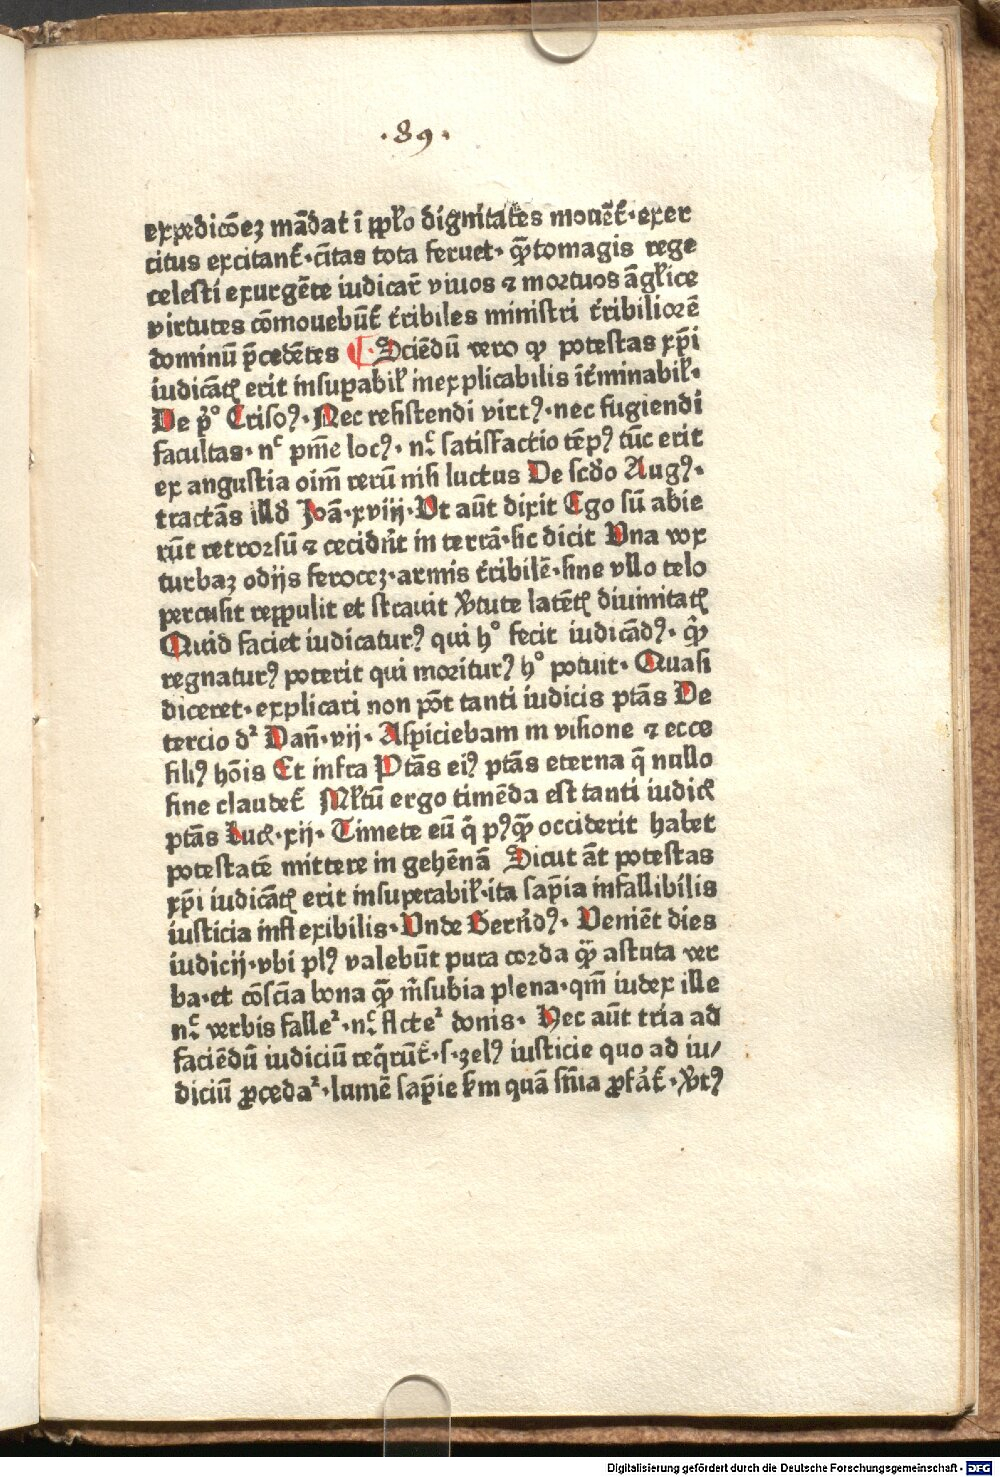 ·89·
expedicōeʒ mādat ī ppl̄o dignitates mouēt᷑·exer
citus excitant᷑·cītas tota feruet·qͣ̄tomagis rege
celesti exurgēte iudicar᷑ viuos ⁊ mortuos āgl̄ice
virtutes cōmouebūt᷑ t᷑ribiles ministri t᷑ribiliorē
dominū p̄cedētes ¶·Sciēdū vero ꝙ potestas xp̄i
iudicātꝭ erit insuꝑabil̄ inexplicabilis īt᷑minabil̄·
De pͥ° Crisoꝰ·Nec resistendi virtꝰ·nec fugiendi
facultas·nᶜ pnīe locꝰ·nᶜ satisfactio tēpꝰ tūc erit
ex angustia oīm rerū nisi luctus De scd̄o Augꝰ·
tractās illd̄ Joā·xviij·Vt aūt dixit Ego sū abie
rūt retrorsū ⁊ cecidr̄t in terrā·sic dicit Vna vox
turbaʒ odijs feroceʒ·armis t᷑ribilē·sine vllo telo
percusit reppulit et strauit v̾tute latētꝭ diuinitatꝭ
Quid faciet iudicaturꝰ qui h° fecit iudicādꝰ·qͥ̄
regnaturꝰ poterit qui moriturꝰ h° potuit·Quasi
diceret·explicari non pōt tanti iudicis ptās De
tercio dʳ Dan̄·vij·Aspiciebam in visione ⁊ ecce
filiꝰ hōis Et infra Ptās eiꝰ ptās eterna q̄ nullo
fine claudet᷑ Ml̄tū ergo timēda est tanti iudicꝭ
ptās Lucꝭ·xij·Timete eū q̄ pꝰqͣ̄ occiderit habet
potestatē mittere in gehēnā Sicut āt potestas
xp̄i iudicātꝭ erit insuperabil̄·ita sap̄ia infallibilis
iusticia inflexibilis·Vnde Bern̄dꝰ·Veniēt dies
iudicij·vbi plꝰ valebūt pura corda qͣ̄ astuta ver
ba·et cōscīa bona qͣ̄ m̄subia plena·qm̄ iudex ille
nᶜ verbis falleʳ·nᶜ flcteʳ donis·Hec aūt tria ad
faciēdū iudiciū req̄rūt᷑·s·zelꝰ iusticie quo ad iu/
diciū ꝓcedaʳ·lumē sap̄ie km quā snīa ꝓfāt᷑·v̾tꝰ
Digitalisierung gefördert durch die Deutsche Forschungsgemeinschaft - DFG